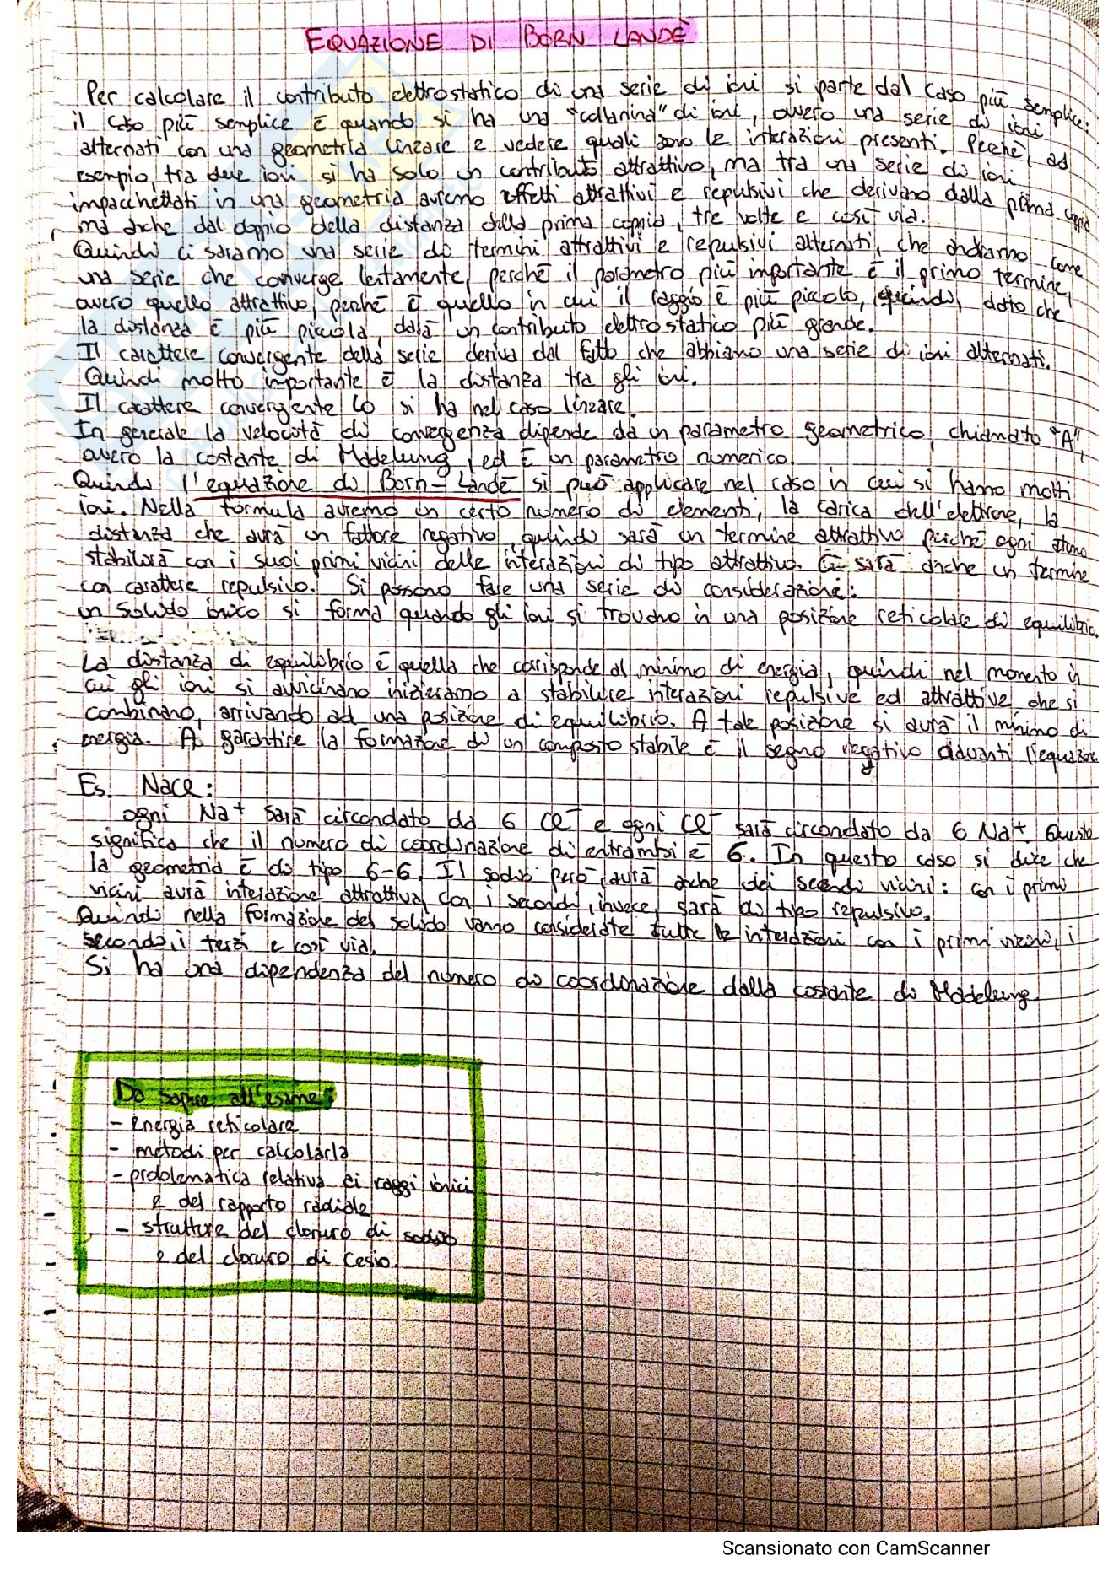 EQUAZIONE DI BORN LANDÈ
Per calcolare il contributo elettrostatico di una serie di ioni si parte dal caso più semplice:
il caso più semplice è quando si ha una "collanina" di ioni, ovvero una serie di ioni
alternati con una geometria lineare e vedere quali sono le interazioni presenti. Perché, ad
esempio, tra due ioni si ha solo un contributo attrattivo, ma tra una serie di ioni
impacchettati in una geometria avremo effetti attrattivi e repulsivi che derivano dalla prima coppia
ma anche dal doppio della distanza della prima coppia, tre volte e così via.
Quindi ci saranno una serie di termini attrattivi e repulsivi alternati, che andranno come
una serie che converge lentamente, perché il parametro più importante è il primo termine,
ovvero quello attrattivo, perché è quello in cui il raggio è più piccolo, quindi, dato che
la distanza è più piccola, darà un contributo elettrostatico più grande.
Il carattere convergente della serie deriva dal fatto che abbiamo una serie di ioni alternati.
Quindi molto importante è la distanza tra gli ioni.
Il carattere convergente lo si ha nel caso lineare.
In generale la velocità di convergenza dipende da un parametro geometrico, chiamato "A",
ovvero la costante di Madelung, ed è un parametro numerico.
Quindi l'equazione di Born-Landè si può applicare nel caso in cui si hanno molti
ioni. Nella formula avremo un certo numero di elementi, la carica dell'elettrone, la
distanza che avrà un fattore negativo, quindi sarà un termine attrattivo perché ogni atomo
stabilirà con i suoi primi vicini delle interazioni di tipo attrattivo. Ci sarà anche un termine
con carattere repulsivo. Si possono fare una serie di considerazioni:
un solido ionico si forma quando gli ioni si trovano in una posizione reticolare di equilibrio.
La distanza di equilibrio è quella che corrisponde al minimo di energia, quindi nel momento in
cui gli ioni si avvicinano inizieranno a stabilire interazioni repulsive ed attrattive, che si
combinano, arrivando ad una posizione di equilibrio. A tale posizione si avrà il minimo di
energia. A garantire la formazione di un composto stabile è il segno negativo davanti l'equazione
Es. NaCl:
ogni Na+ sarà circondato da 6 Cl- e ogni Cl- sarà circondato da 6 Na+. Questo
significa che il numero di coordinazione di entrambi è 6. In questo caso si dice che
la geometria è di tipo 6-6. Il sodio però, avrà anche dei secondi vicini: con i primi
vicini avrà interazione attrattiva, con i secondi, invece, sarà di tipo repulsivo.
Quindi nella formazione del solido vanno considerate tutte le interazioni con i primi vicini, i
secondi, i terzi e così via.
Si ha una dipendenza del numero di coordinazione dalla costante di Madelung.
Da sapere all'esame:
- Energia reticolare
- metodi per calcolarla
- problematica relativa ai raggi ionici
e del rapporto radiale
- strutture del cloruro di sodio
e del cloruro di cesio.
Scansionato con CamScanner